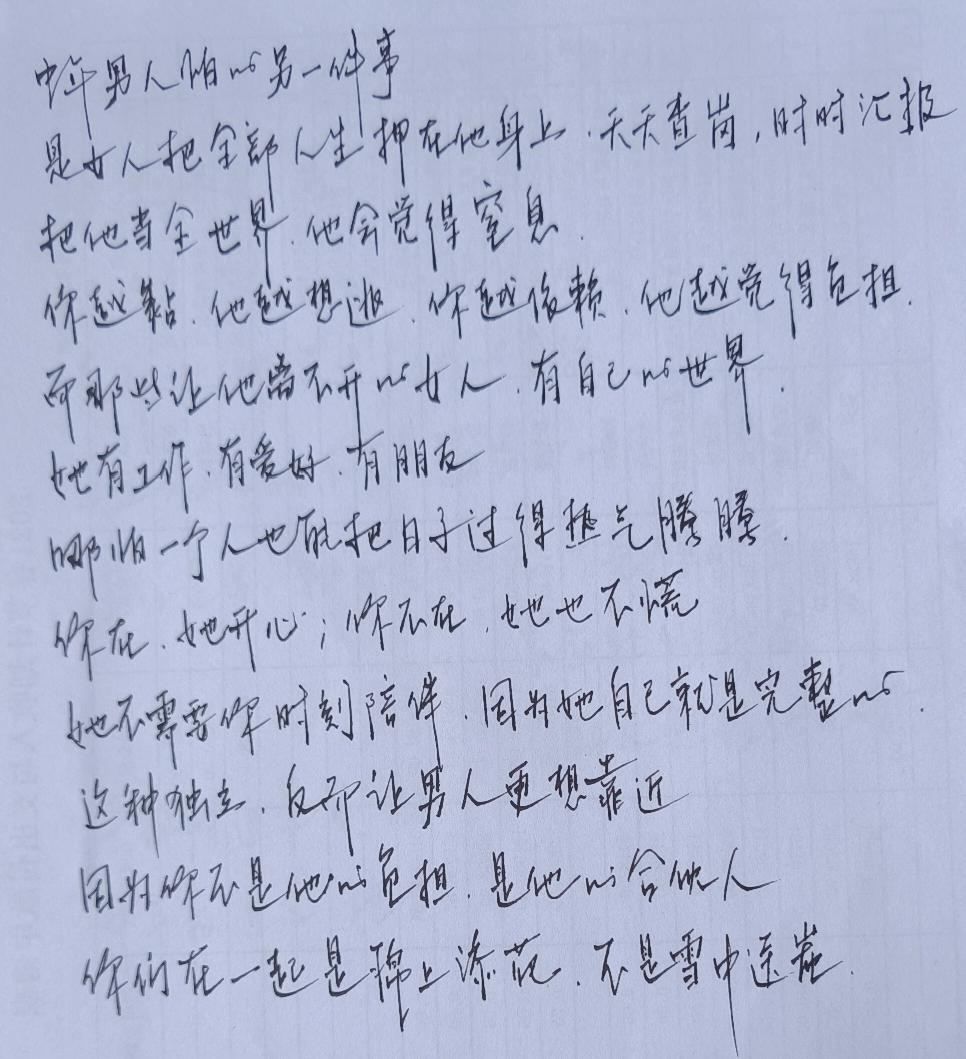 中年男人怕的另一件事
是女人把全部人生押在他身上.天天查岗,时时汇报
把他当全世界.他会觉得窒息.
你越黏.他越想逃.你越依赖.他越觉得负担.
而那些让他离不开的女人.有自己的世界.
她有工作.有爱好.有朋友
哪怕一个人也能把日子过得热气腾腾.
你在.她开心;你不在.她也不慌
她不需要你时刻陪伴.因为她自己就是完整的.
这种独立.反而让男人更想靠近
因为你不是他的负担.是他的合伙人
你们在一起是锦上添花.不是雪中送炭.